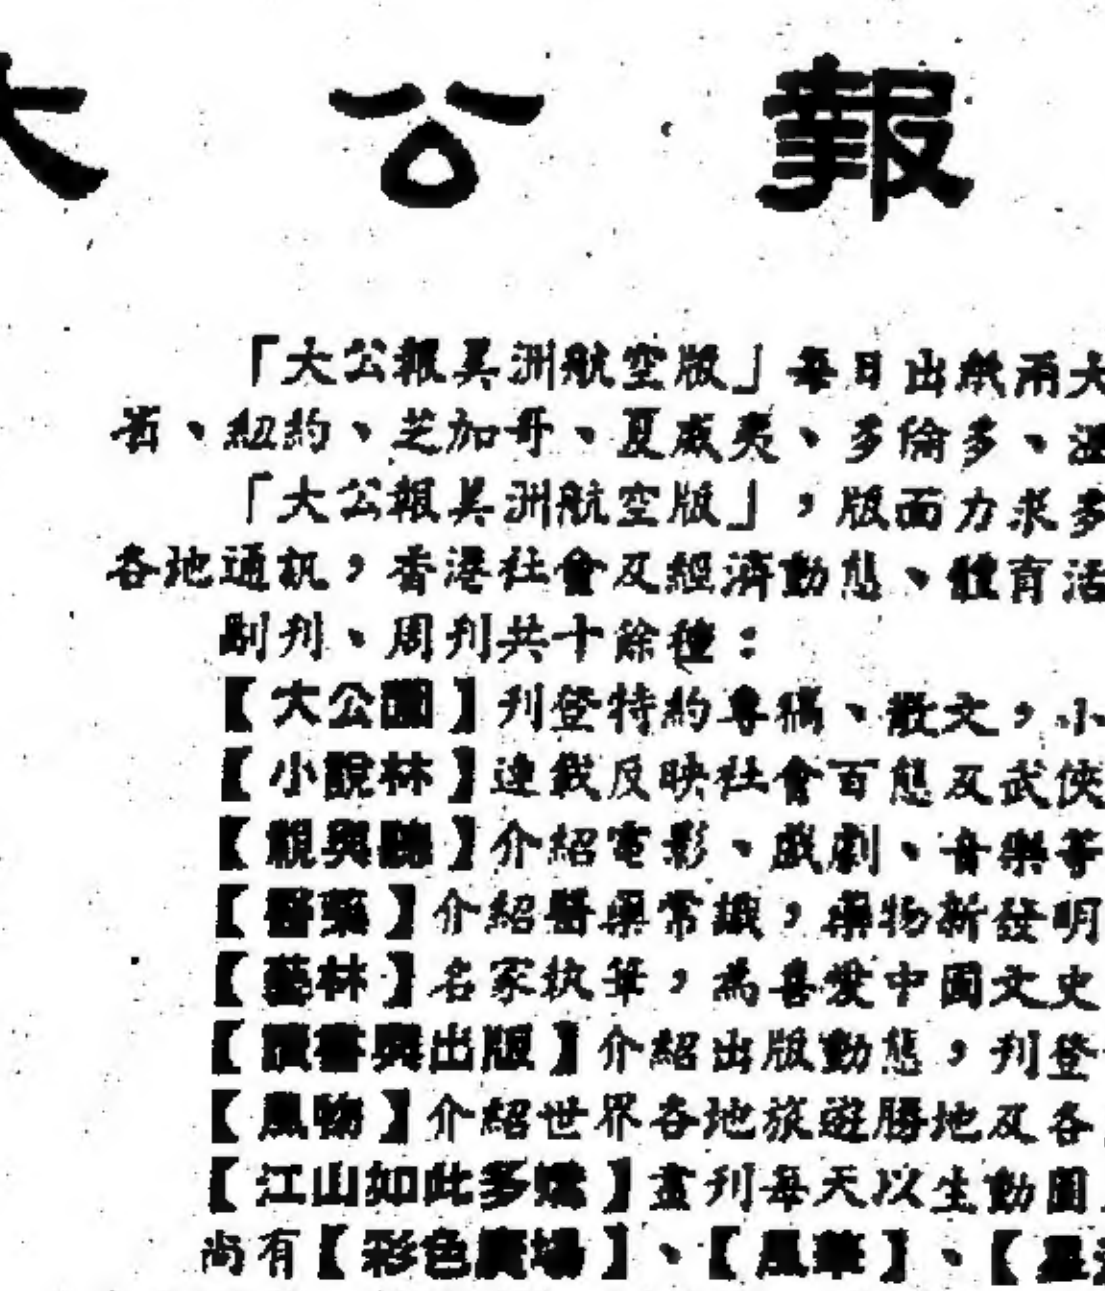 大公報
「大公報美洲航空版」每日出紙兩大
省、紐約、芝加哥、夏威夷、多倫多、溫
「大公報美洲航空版」，版面力求多
各地通訊，香港社會及經濟動態、體育活
副刊、周刊共十餘種：
【大公園】刊登特約專稿、散文，小
【小說林】連載反映社會百態及武俠
【觀與聽】介紹電影、戲劇、音樂等
【醫藥】介紹醫藥常識，藥物新發明
【藝林】名家執筆，為喜愛中國文史
【讀書與出版】介紹出版動態，刊登
【風物】介紹世界各地旅遊勝地及各
【江山如此多嬌】畫刊每天以生動圖
尚有【彩色廣場】、【風華】、【星